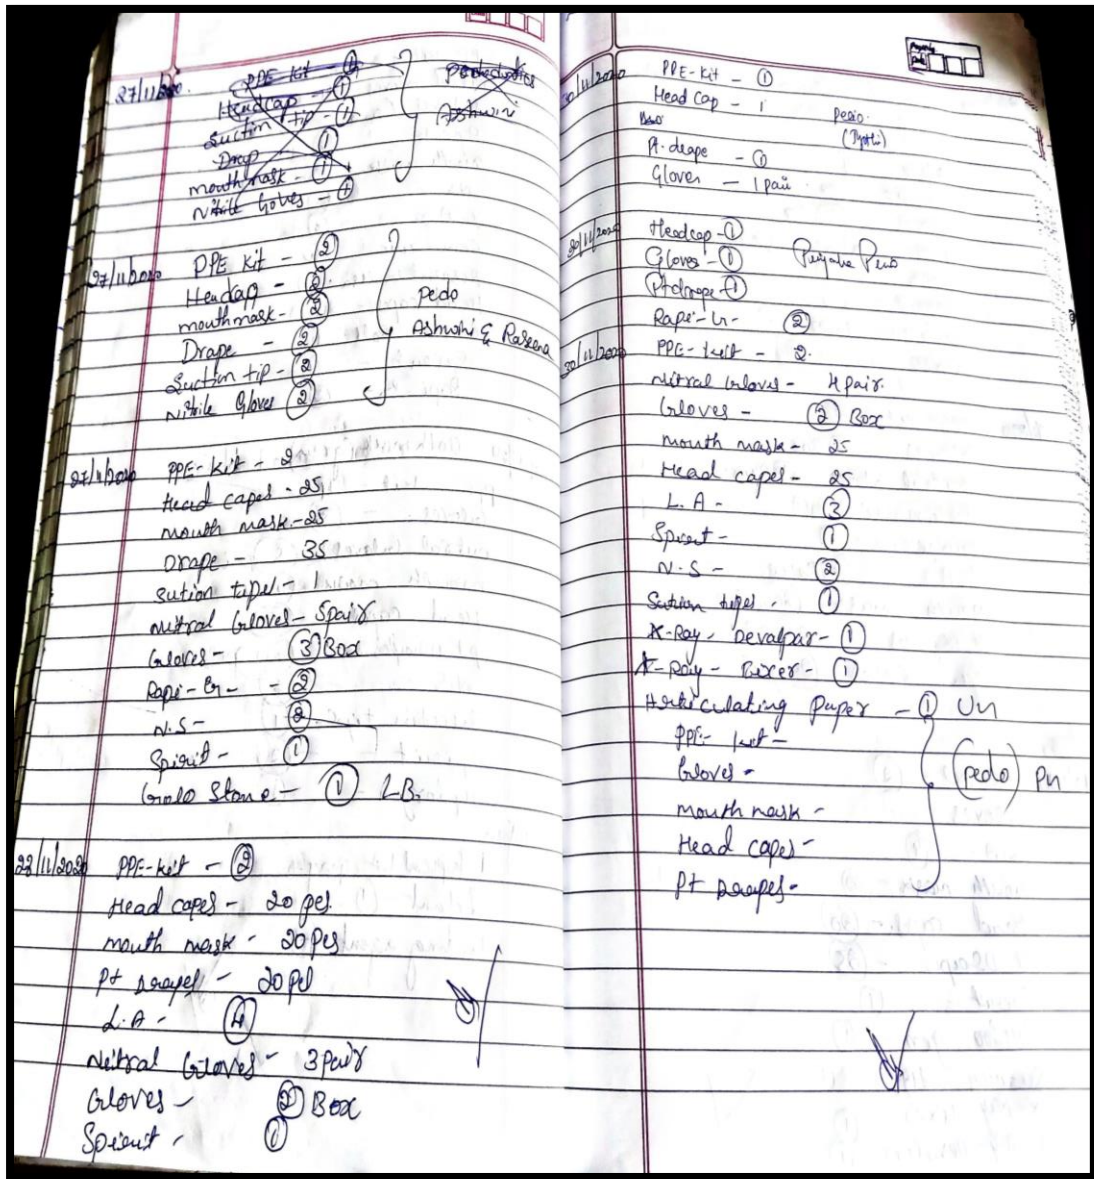 27/11/2020. PPE-kit - ①
Headcap - ①
Suction tip - ①
Drap - ①
mouth mask - ①
Nitrile Goloves - ①
Ashwini
27/11/2020 PPE kit - ②
Headcap - ②
mouthmask - ②
Drape - ②
Suction tip - ②
Nitrile Gloves ②
Pedo
Ashwini & Raseena
27/11/2020 PPE-kit - 2
Head capes - 25
mouth mask - 25
Drape - 35
sution tipes -
Nitral Gloves - 5pair
Gloves - ③ Box
Rapi-Gr - ②
N.S - ②
Spirit - ①
Golo Stone - ① LB
28/11/2020 PPE-keit - ②
Head capes - 20 pes
mouth mask - 20 Pes
Pt Drapes - 20 Pes
L.A - ④
Neitral Gloves - 3 Pair
Gloves - ② Box
Spieut - ①
30/11/2020 PPE-Kit - ①
Head Cap - 1
Pedo.
(Jyothi)
Pt. drape - ①
Gloves - 1 pair
30/11/2020 Headcap - ①
Gloves - ①
Pt drape - ①
Rapi-Gr - ②
30/11/2020 PPE-keit - 2.
Nitral Gloves - 4 pair.
Gloves - ② Box
mouth mask - 25
Head capes - 25
L.A - ③
Spieut - ①
N.S - ②
Sution tipes - ①
X-Ray - Devalpar - ①
X-Ray - Bixer - ①
Hrticulating Paper - ① Un
PPE- keit -
Gloves -
mouth mask -
Head capes -
Pt Drapes -
(pedo) Pn